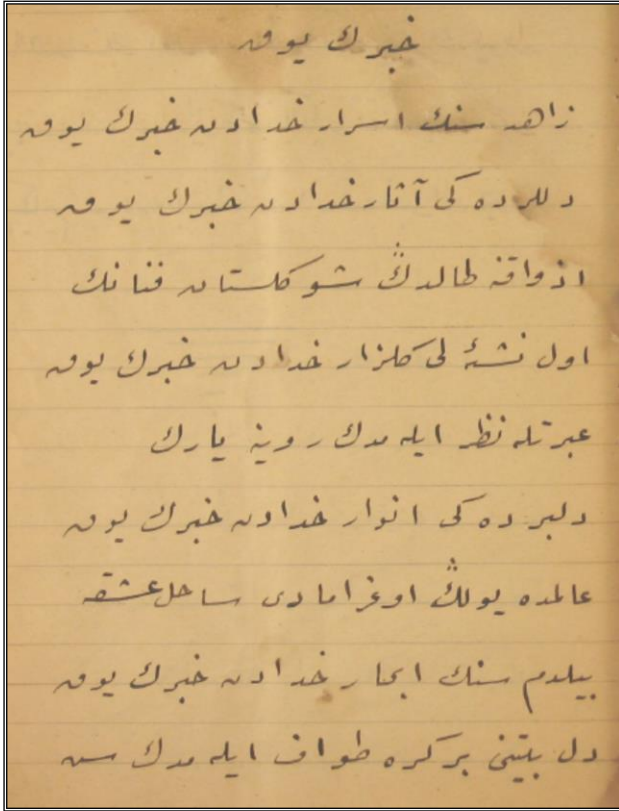 خبرك يوق
زاهد سنك اسرار خدادن خبرك يوق
دللرده كى آثار خدادن خبرك يوق
اذواقنه طالدڭ شو كلستان فنانك
اول نشئه لى كلزار خدادن خبرك يوق
عبرتله نظر ايله مدك روينه يارك
دلبرده كى انوار خدادن خبرك يوق
عالمده يولڭ اوغرامادى ساحل عشقه
بيلدم سنك ابحار خدادن خبرك يوق
دل بيتنى بر كره طواف ايله مدك سن